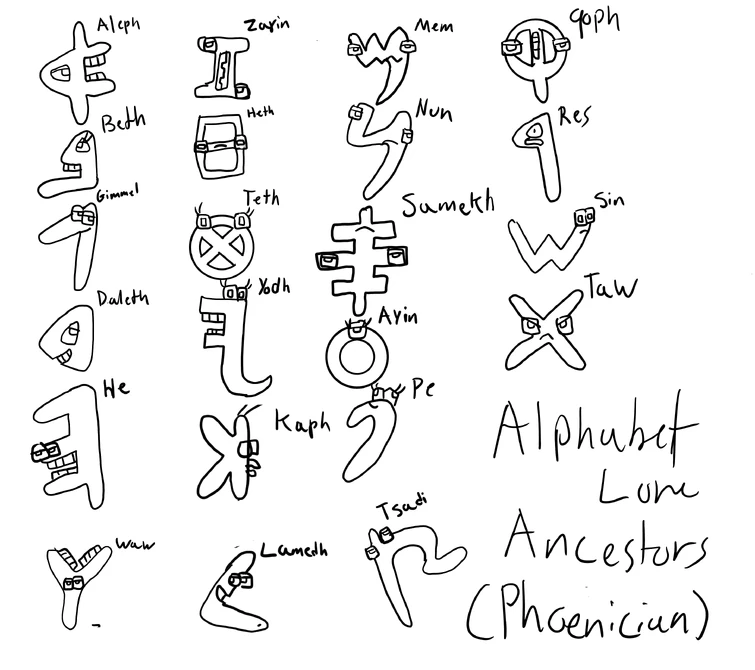 Aleph
Beth
Gimmel
Daleth
He
Waw
Zayin
Heth
Teth
Yodh
Kaph
Lamedh
Mem
Nun
Samekh
Ayin
Pe
Tsadi
qoph
Res
Sin
Taw
Alphabet
Lore
Ancestors
(Phoenician)